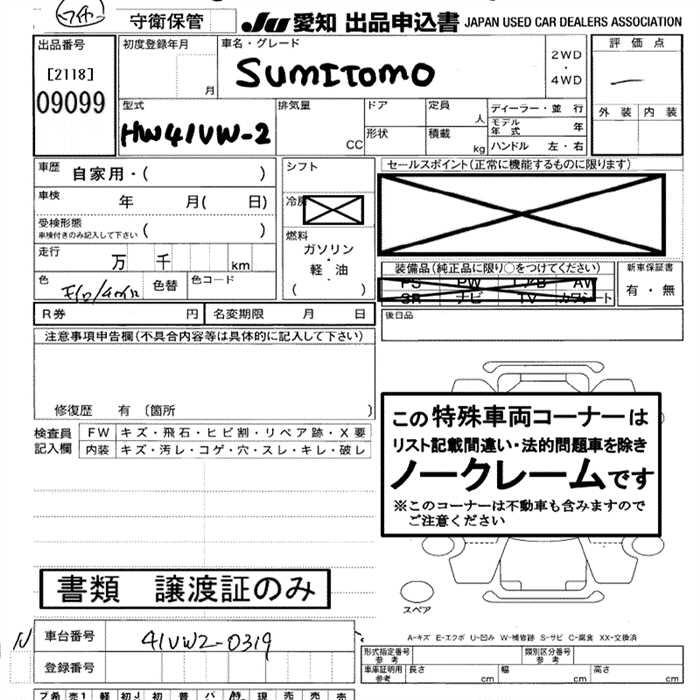 守衛保管 JU 愛知 出品申込書 JAPAN USED CAR DEALERS ASSOCIATION
出品番号 初度登録年月 車名・グレード 評価点
[2118] 月 SUMITOMO 2WD・4WD
09099
外装 内装
型式 排気量 ドア 定員 人 ディーラー・並行
HW41VW-2 CC 形状 積載 kg モデル年式 年
ハンドル 左・右
車歴 自家用・( ) シフト セールスポイント(正常に機能するものに限ります)
車検 年 月( 日) 冷房
受検形態 ( )
車検付きのみ記入して下さい
燃料
ガソリン・軽・油
( )
走行 万 千 km
色 色替 色コード
装備品(純正品に限り○をつけてください) 新車保証書
PS PW エアB AW 有・無
SR ナビ TV カワシート
R券 円 名変期限 月 日 後日品
注意事項申告欄(不具合内容等は具体的に記入して下さい)
修復歴 有 〔箇所 〕
検査員記入欄 FW キズ・飛石・ヒビ割・リペア跡・X要
内装 キズ・汚レ・コゲ・穴・スレ・キレ・破レ
この特殊車両コーナーは
リスト記載間違い・法的問題車を除き
ノークレームです
※このコーナーは不動車も含みますので
ご注意ください
書類 譲渡証のみ
スペア
A-キズ E-エクボ U-凹み W-補修跡 S-サビ C-腐食 XX-交換済
N 車台番号 41VW2-0319
登録番号
形式指定番号 参考 類別区分番号 参考
車庫証明用 参考 長さ cm 幅 cm 高さ cm